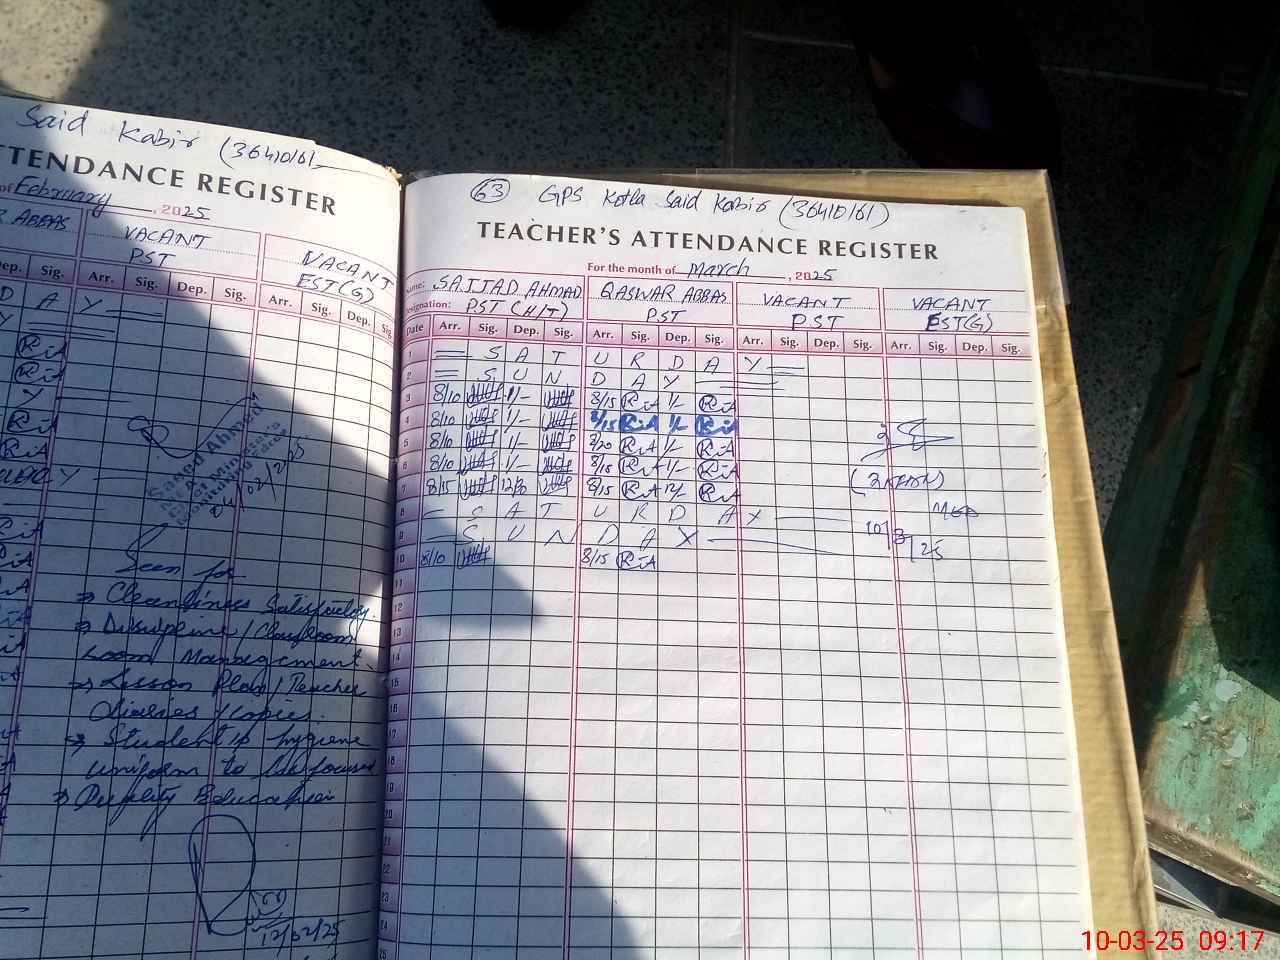 Said Kabir (36410161
TTENDANCE REGISTER
of February, 2025
R ABBAS VACANT VACANT
PST EST(G)
Dep. Sig. Arr. Sig. Dep. Sig. Arr. Sig. Dep. Sig.
D A Y
Y
RiA
RiA
Y
RiA
RiA
Y
04/02/2025
Seen for
⇒ Cleanliness Satisfactory.
⇒ Discipline / Classroom
room Management.
⇒ Lesson Plan / Teacher
diaries / copies.
⇒ Student's hygiene
uniform to be focused
⇒ Quality Education
12/02/25
63 GPS Kotla Said Kabir (36410161)
TEACHER'S ATTENDANCE REGISTER
For the month of March, 2025
Name: SAJJAD AHMAD QASWAR ABBAS VACANT VACANT
Designation: PST (H/T) PST PST EST(G)
Date Arr. Sig. Dep. Sig. Arr. Sig. Dep. Sig. Arr. Sig. Dep. Sig. Arr. Sig. Dep. Sig.
1 S A T U R D A Y
2 S U N D A Y
3 8/10 1/- 8/15 RiA 1/- RiA
4 8/10 1/- 8/15 RiA 1/- RiA
5 8/10 1/- 8/20 RiA 1/- RiA
6 8/10 1/- 8/15 RiA 1/- RiA
7 8/15 12/ 8/15 RiA 12/ RiA
8 S A T U R D A Y
9 S U N D A Y
10 8/10 8/15 RiA
11
12
13
14
15
16
17
18
19
20
21
22
23
24
25
10/3/25
10-03-25 09:17